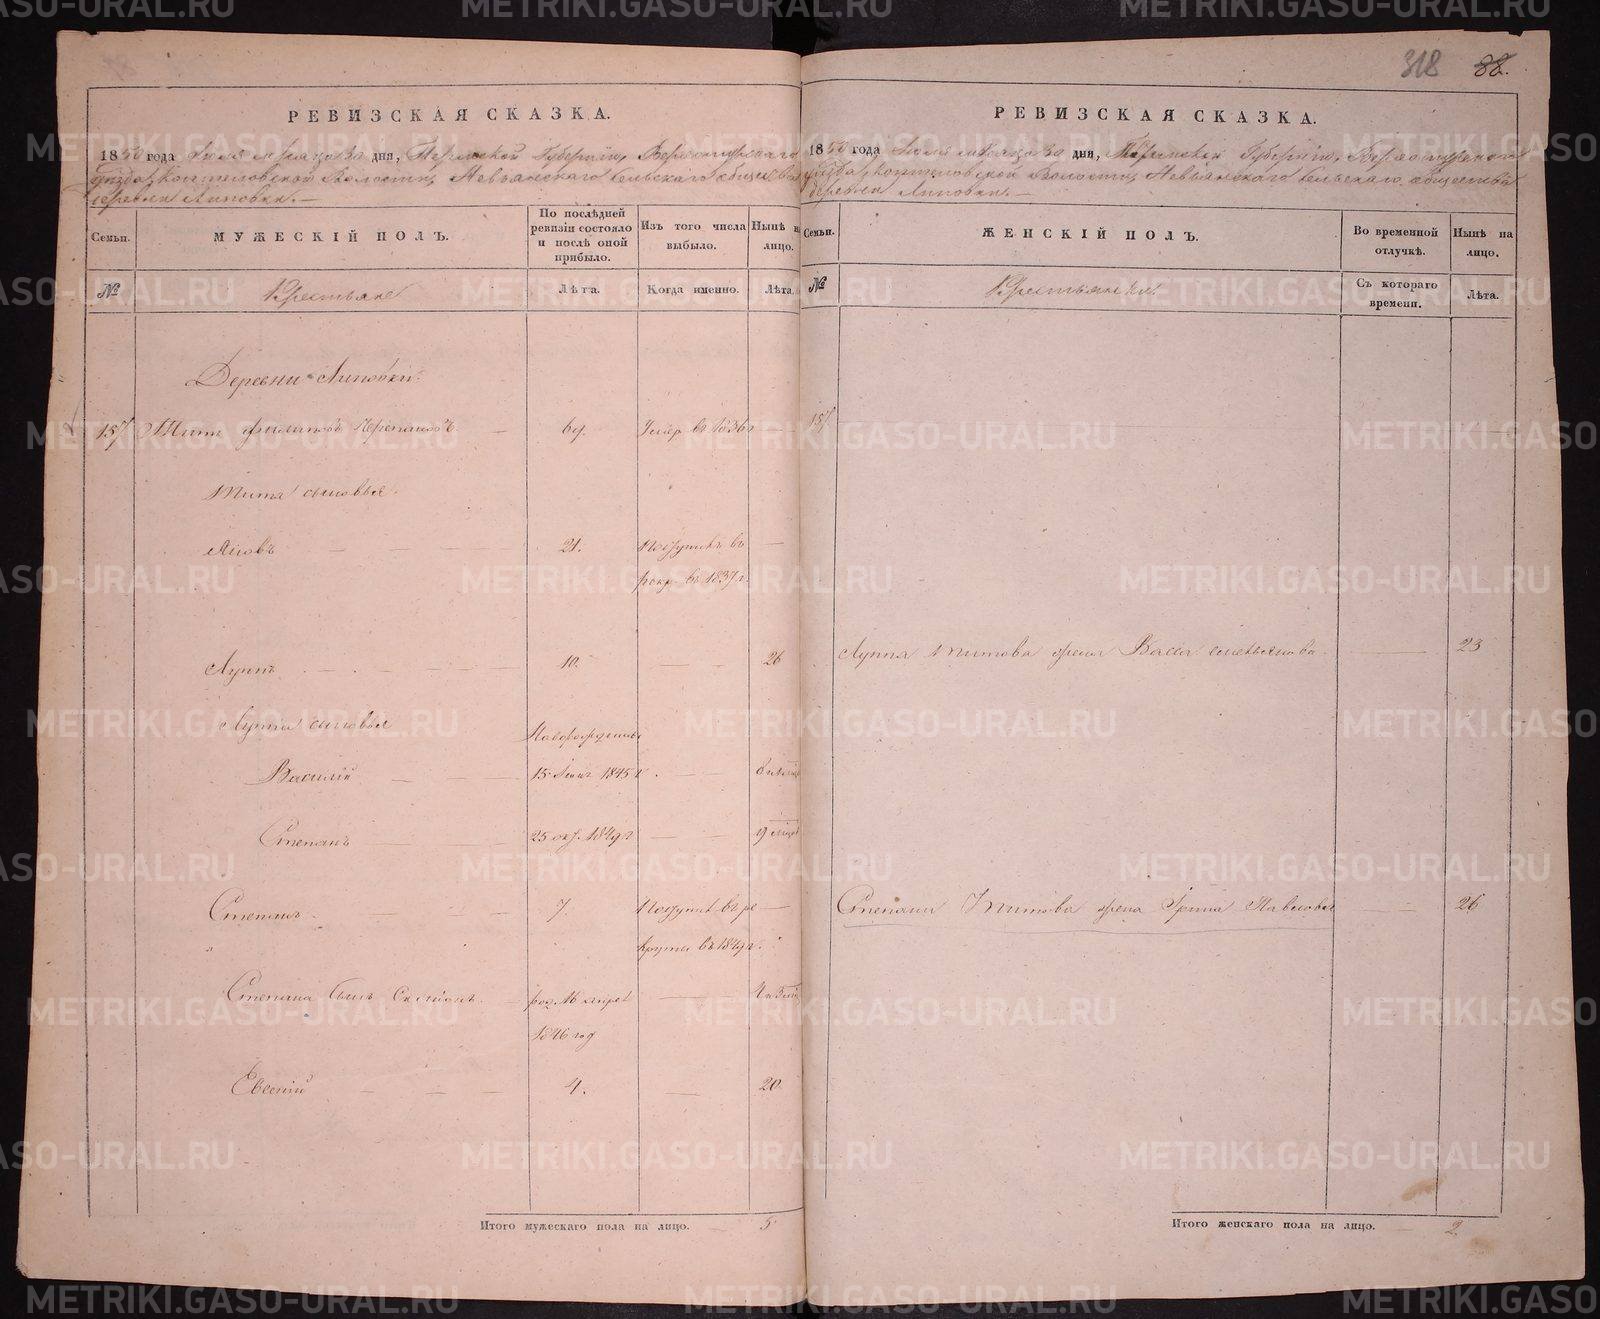 318 88.
РЕВИЗСКАЯ СКАЗКА.
1850 года Июля месяца 30 дня, Пермской Губернiи, Верхотурскаго
уѣзда, Коптеловской Волости, Невьянскаго сельскаго общества
деревни Липовки.
Семьи.
МУЖЕСКІЙ ПОЛЪ.
По послѣдней ревизіи состояло и послѣ оной прибыло.
Изъ того числа выбыло.
Нынѣ на лицо.
№
Крестьяне
Лѣта.
Когда именно.
Лѣта.
Деревни Липовки.
157 Титъ Филиповъ Черепановъ — 69. Умер. въ 1836 г —
Тита сыновья.
Яковъ — — 21. Поступилъ въ —
рекр. въ 1837 г.
Луппъ — — 10. — — 26
Луппа сыновья
Новорожденные
Василій — — 15 1845 г. —
Степанъ — 25 окт. 1849 г — — 9 мѣсяц
Степанъ — — 7 Поступ. въ ре —
круты въ 1849 г.
Степана сынъ — 16 апрел —
1846 год
Евсевій — — — 4. — 20
Итого мужескаго пола на лицо. 5
РЕВИЗСКАЯ СКАЗКА.
1850 года Июля месяца 30 дня, Пермской Губернiи, Верхотурскаго
уѣзда, Коптеловской Волости, Невьянскаго сельскаго общества
деревни Липовки.
Семьи.
ЖЕНСКІЙ ПОЛЪ.
Во временной отлучкѣ.
Нынѣ на лицо.
№
Крестьянки.
Съ котораго времени.
Лѣта.
157
Луппа Титова жена Васса Емельянова — 23
Степана Титова жена Ирина Павлова — 26
Итого женскаго пола на лицо. 2
METRIKI.GASO-URAL.RU